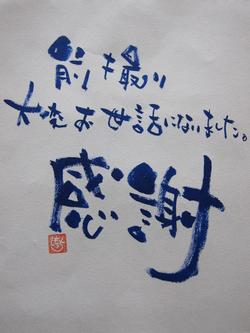 前撮り
大変お世話になりました。
感謝